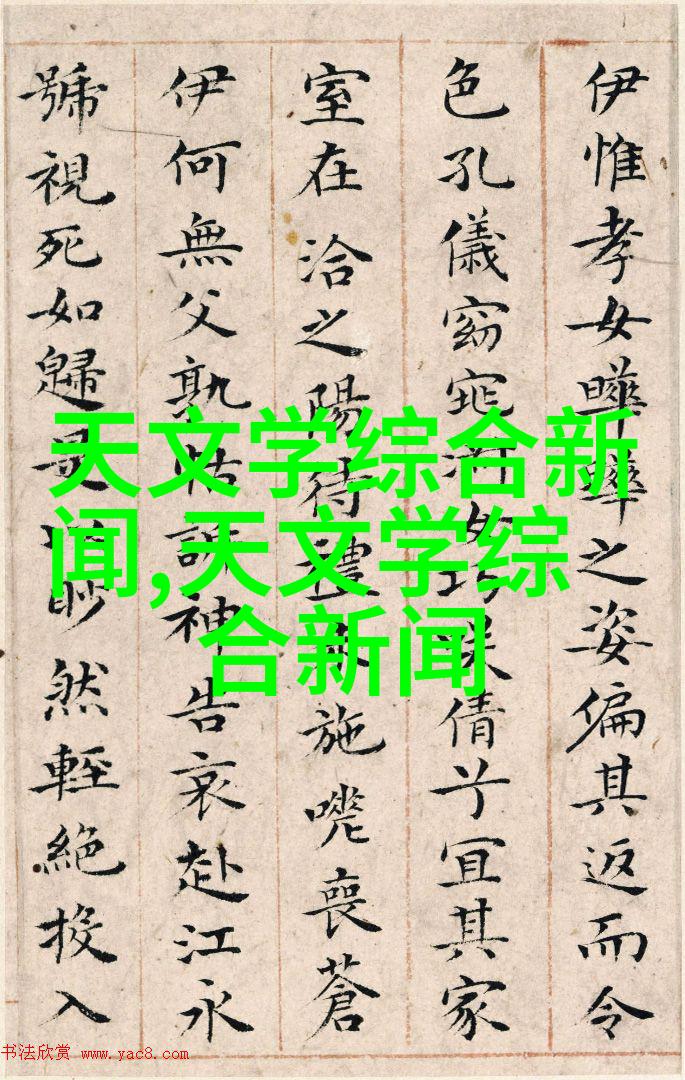 伊惟孝女曄曄之姿偏其返而令
色孔儀窈窕淑女巧咲倩兮宜其家
室在洽之陽待禮未施嗟喪蒼
伊何無父孰怙訴神告哀赴江永
號視死如歸是以眇然輕絕投入
天文学综合新
闻,天文学综
合新闻
书法欣赏 www.yac8.com